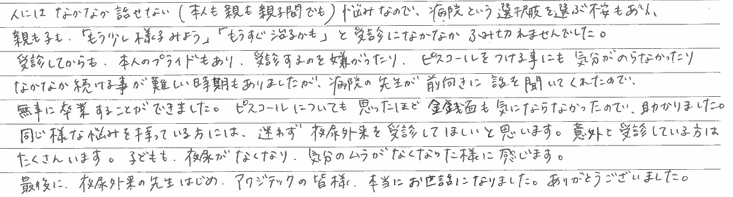 人にはなかなか話せない(本人も親も親子間でも)悩みなので、病院という選択肢を選ぶ不安もあり、
親も子も、「もう少し様子みよう」「もうすぐ治るかも」と受診になかなかふみ切れませんでした。
受診してからも、本人のプライドもあり、受診するのを嫌がったり、ピスコールをつける事にも気分がのらなかったり
なかなか続ける事が難しい時期もありましたが、病院の先生が前向きに話を聞いてくれたので、
無事に卒業することができました。ピスコールについても思ったほど金銭面も気にならなかったので、助かりました。
同じ様な悩みを持っている方には、迷わず夜尿外来を受診してほしいと思います。意外と受診している方は
たくさんいます。子どもも、夜尿がなくなり、気分のムラがなくなった様に感じます。
最後に、夜尿外来の先生はじめ、アワジテックの皆様、本当にお世話になりました。ありがとうございました。